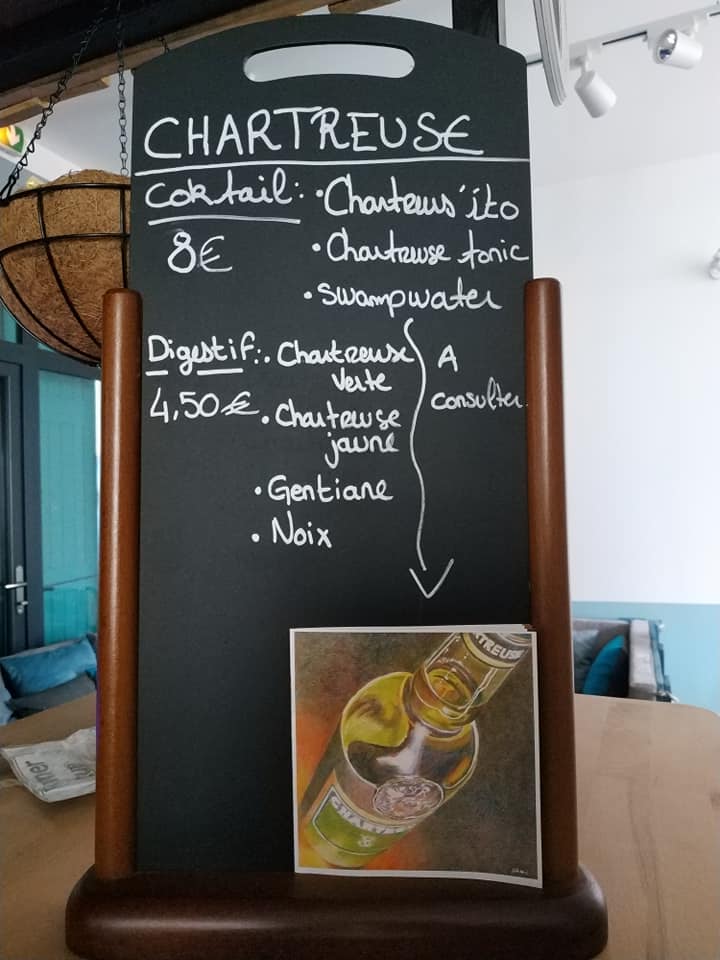 CHARTREUSE
Coktail: • Charteus'ito
8€ • Chartreuse tonic
• Swampwater
Digestif: • Chartreuse
verte
4,50€ • Chartreuse
jaune
• Gentiane
• Noix
A
consulter
TREUSE